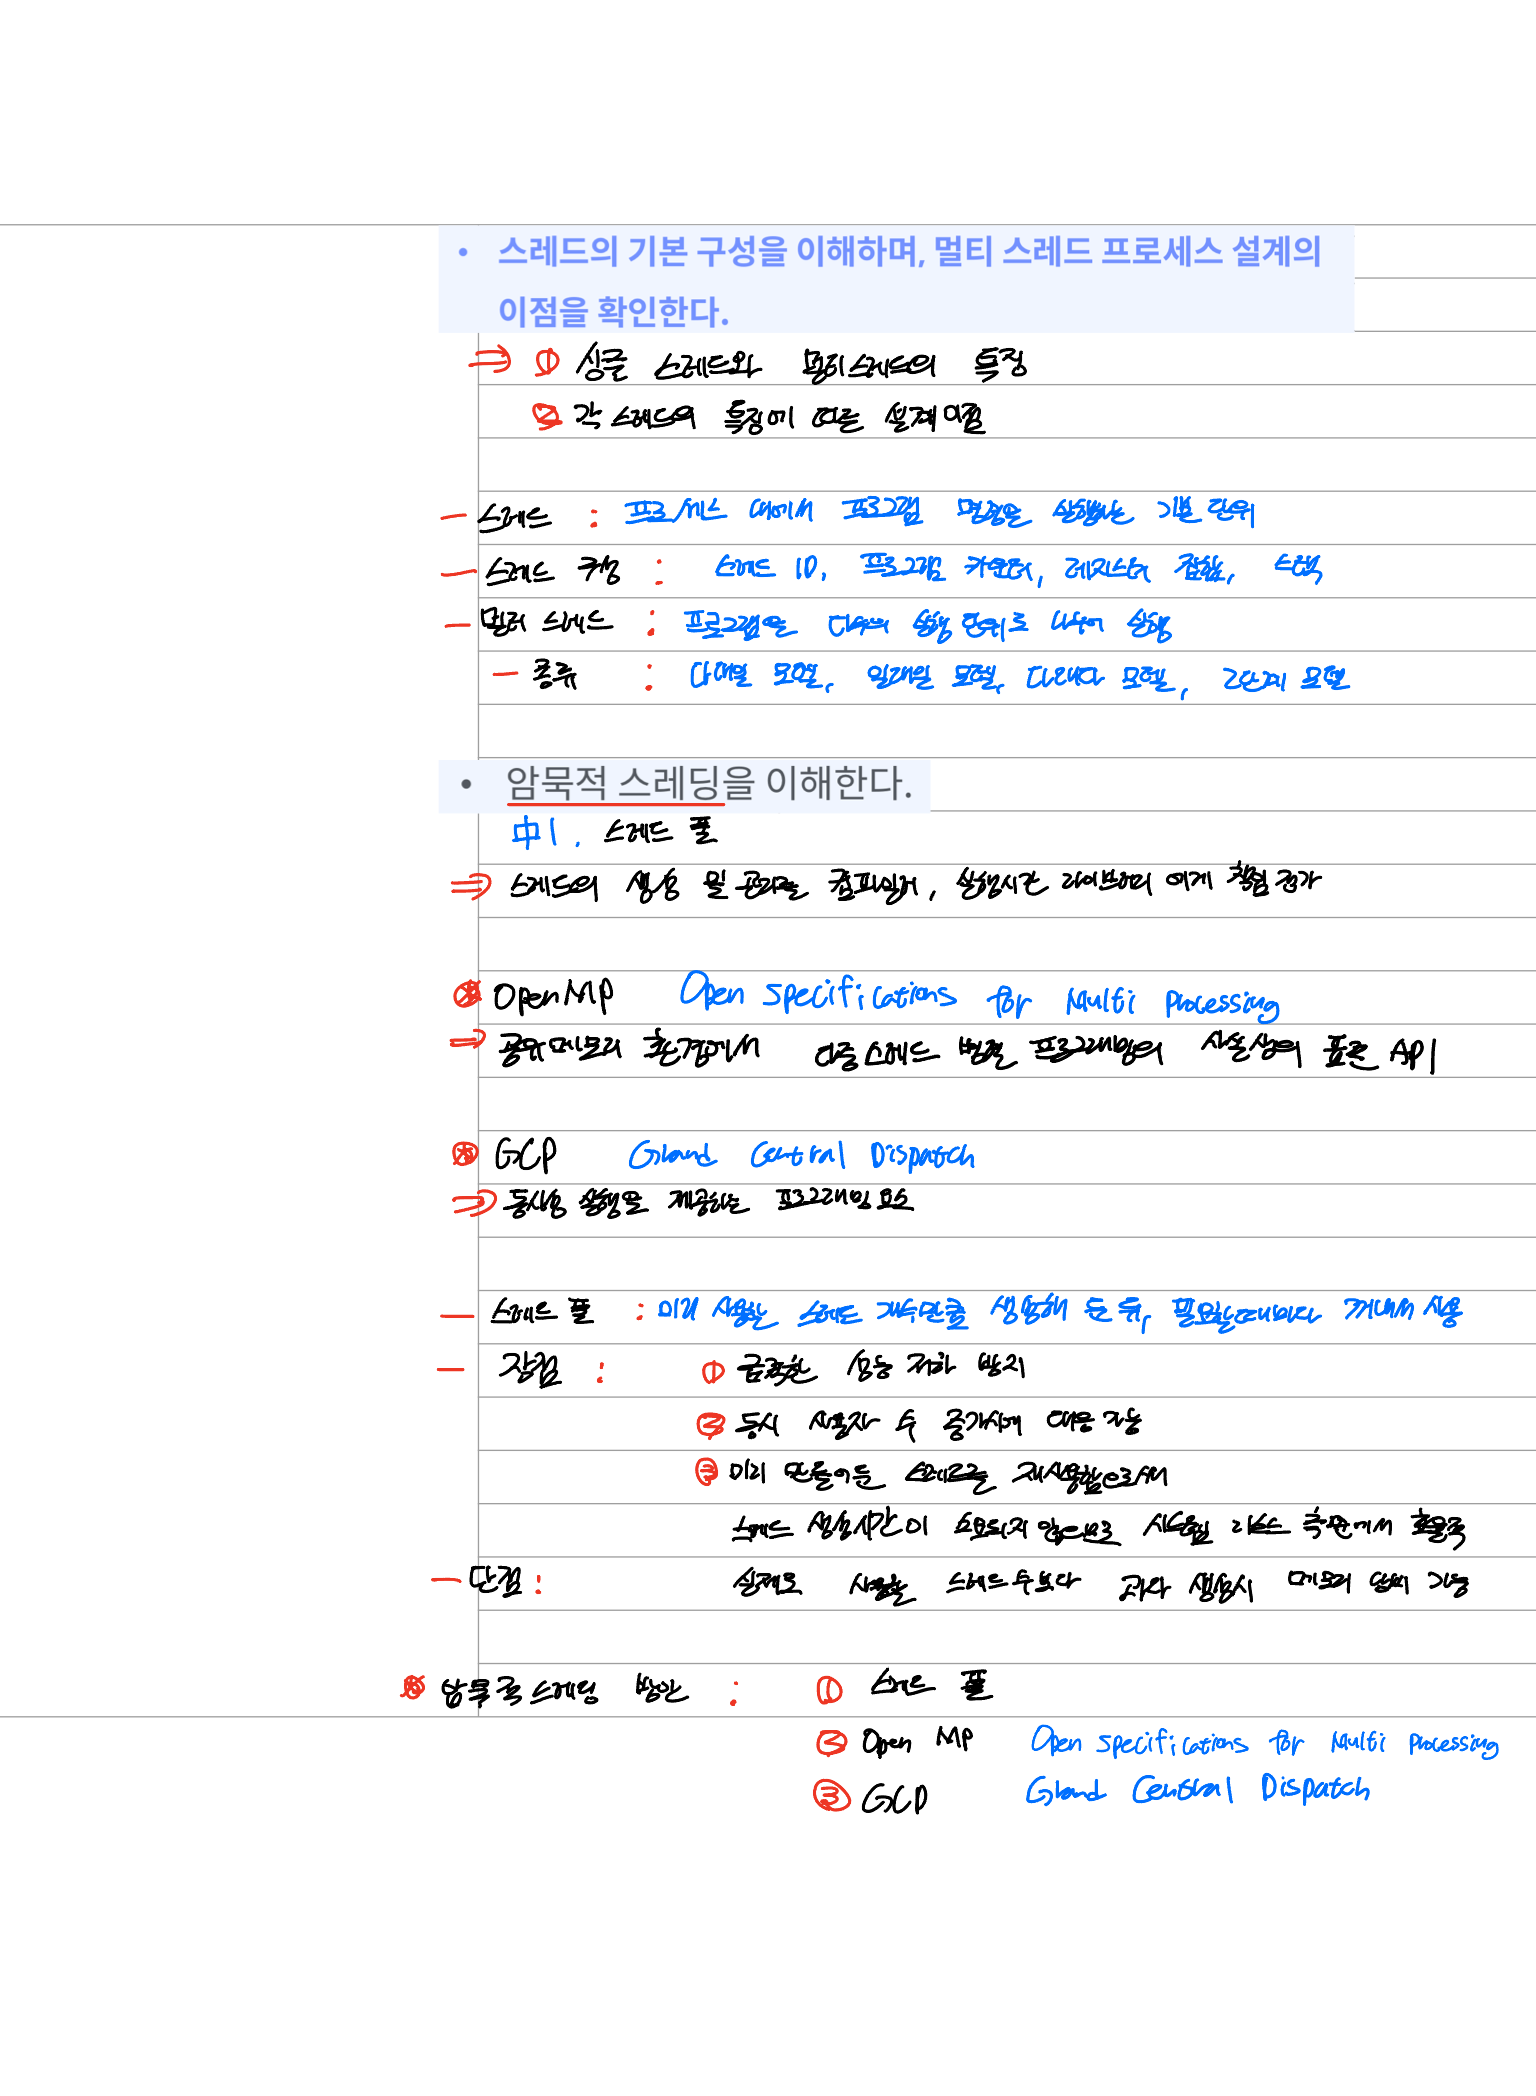 • 스레드의 기본 구성을 이해하며, 멀티 스레드 프로세스 설계의
이점을 확인한다.
⇒ ① 싱글 스레드와 멀티스레드의 특징
② 각 스레드의 특징에 따른 설계 이점
- 스레드 : 프로세스 내에서 프로그램 명령을 실행하는 기본 단위
- 스레드 구성 : 스레드 ID, 프로그램 카운터, 레지스터 집합, 스택
- 멀티 스레드 : 프로그램을 다수의 실행 단위로 나누어 실행
- 종류 : 다대일 모델, 일대일 모델, 다대다 모델, 2단계 모델
• 암묵적 스레딩을 이해한다.
中 1. 스레드 풀
⇒ 스레드의 생성 및 관리를 컴파일러, 실행시간 라이브러리 에게 책임 전가
OpenMP Open specifications for Multi Processing
⇒ 공유메모리 환경에서 다중스레드 병렬 프로그래밍의 사실상의 표준 API
GCP Grand Central Dispatch
⇒ 동시성 실행을 제공하는 프로그래밍 요소
- 스레드 풀 : 미리 사용할 스레드 개수만큼 생성해 둔 뒤, 필요할때마다 꺼내서 사용
- 장점 : ① 급격한 성능 저하 방지
② 동시 사용자 수 증가시에 대응 가능
③ 미리 만들어둔 스레드를 재사용함으로써
스레드 생성시간이 소요되지 않으므로 시스템 리소스 측면에서 효율적
- 단점 : 실제로 사용할 스레드 수보다 과다 생성시 메모리 낭비 가능
암묵적 스레딩 방안 : ① 스레드 풀
② Open MP Open specifications for Multi Processing
③ GCD Grand Central Dispatch